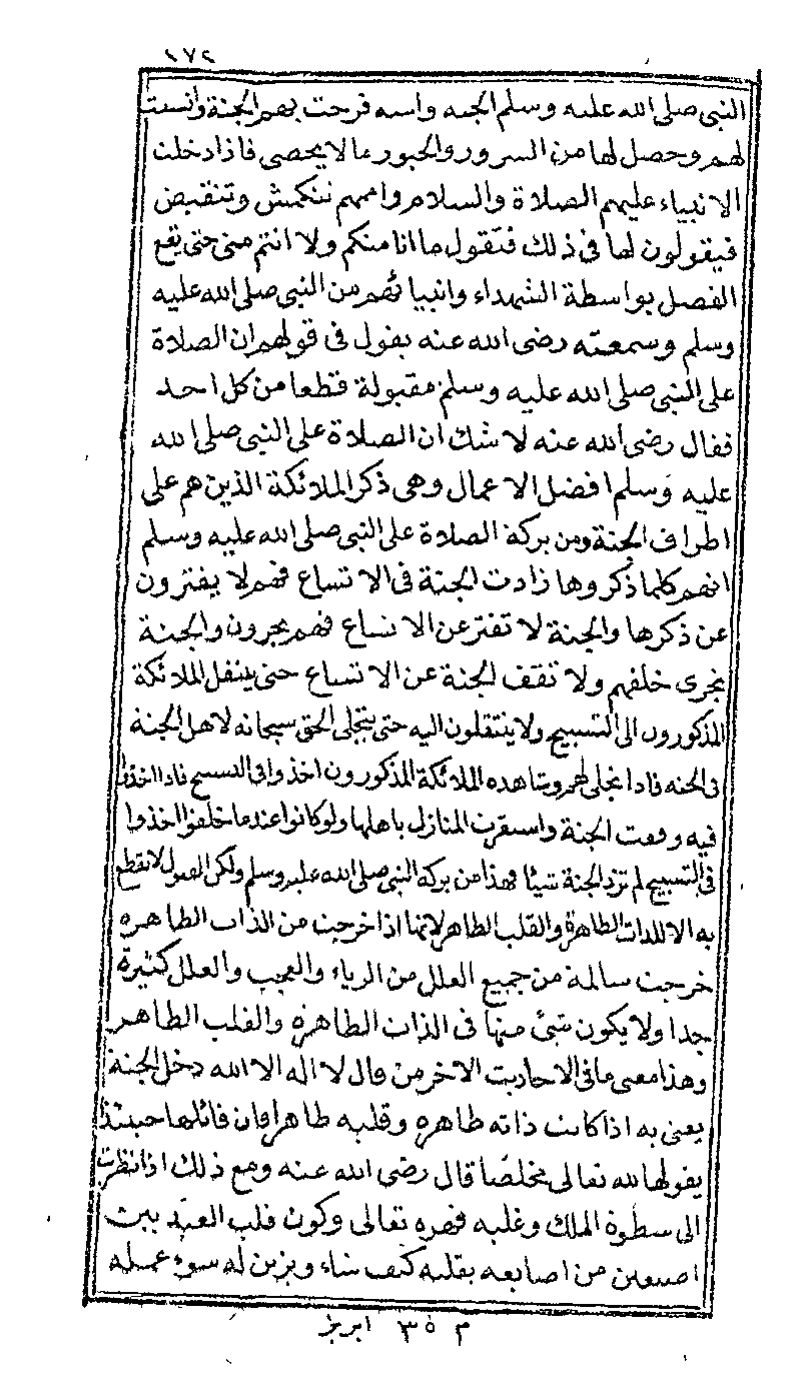 ١٧٢
النبى صلى الله عليه وسلم الجنه وامته فرحت بهم الجنة واتسعت
لهم وحصل لها من السرور والحبور ما لا يحصى فاذا دخلت
الانبياء عليهم الصلاة والسلام واممهم تنكمش وتنقبض
فيقولون لها فى ذلك فتقول ما انا منكم ولا انتم منى حتى يقع
الفصل بواسطة الشهداء وانبيائهم من النبى صلى الله عليه
وسلم وسمعته رضى الله عنه يقول فى قولهم ان الصلاة
على النبى صلى الله عليه وسلم مقبولة قطعا من كل احد
فقال رضى الله عنه لا شك ان الصلاة على النبى صلى الله
عليه وسلم افضل الاعمال وهى ذكر الملائكة الذين هم على
اطراف الجنة ومن بركة الصلاة على النبى صلى الله عليه وسلم
انهم كلما ذكروها زادت الجنة فى الاتساع فهم لا يفترون
عن ذكرها والجنة لا تفتر عن الاتساع فهم يجرون والجنة
تجرى خلفهم ولا تقف الجنة عن الاتساع حتى ينتقل الملائكة
المذكورون الى التسبيح ولا ينتقلون اليه حتى يتجلى الحق سبحانه لاهل الجنة
فى الجنه فاذا تجلى لهم وشاهده الملائكة المذكورون اخذوا فى التسبيح فاذا اخذوا
فيه وقفت الجنة واستقرت المنازل باهلها ولو كانوا عندما خلقوا اخذوا
فى التسبيح لم تزد الجنة شيئا فهذا من بركة النبى صلى الله عليه وسلم ولكن القبول لا يقطع
به الا للذات الطاهرة والقلب الطاهر لانها اذا خرجت من الذات الطاهره
خرجت سالمة من جميع العلل من الرياء والعجب والعلل كثيرة
جدا ولا يكون شئ منها فى الذات الطاهره والقلب الطاهر
وهذا معنى ما فى الاحاديث الاخر من قال لا اله الا الله دخل الجنة
يعنى به اذا كانت ذاته طاهره وقلبه طاهرا فان قائلها حينئذ
يقولها لله تعالى مخلصا قال رضى الله عنه ومع ذلك اذا نظرت
الى سطوة الملك وغلبه قهره تعالى وكون قلب العبد بين
اصبعين من اصابعه يقلبه كيف شاء ويزين له سوء عمله
م ٣٥ ابريز